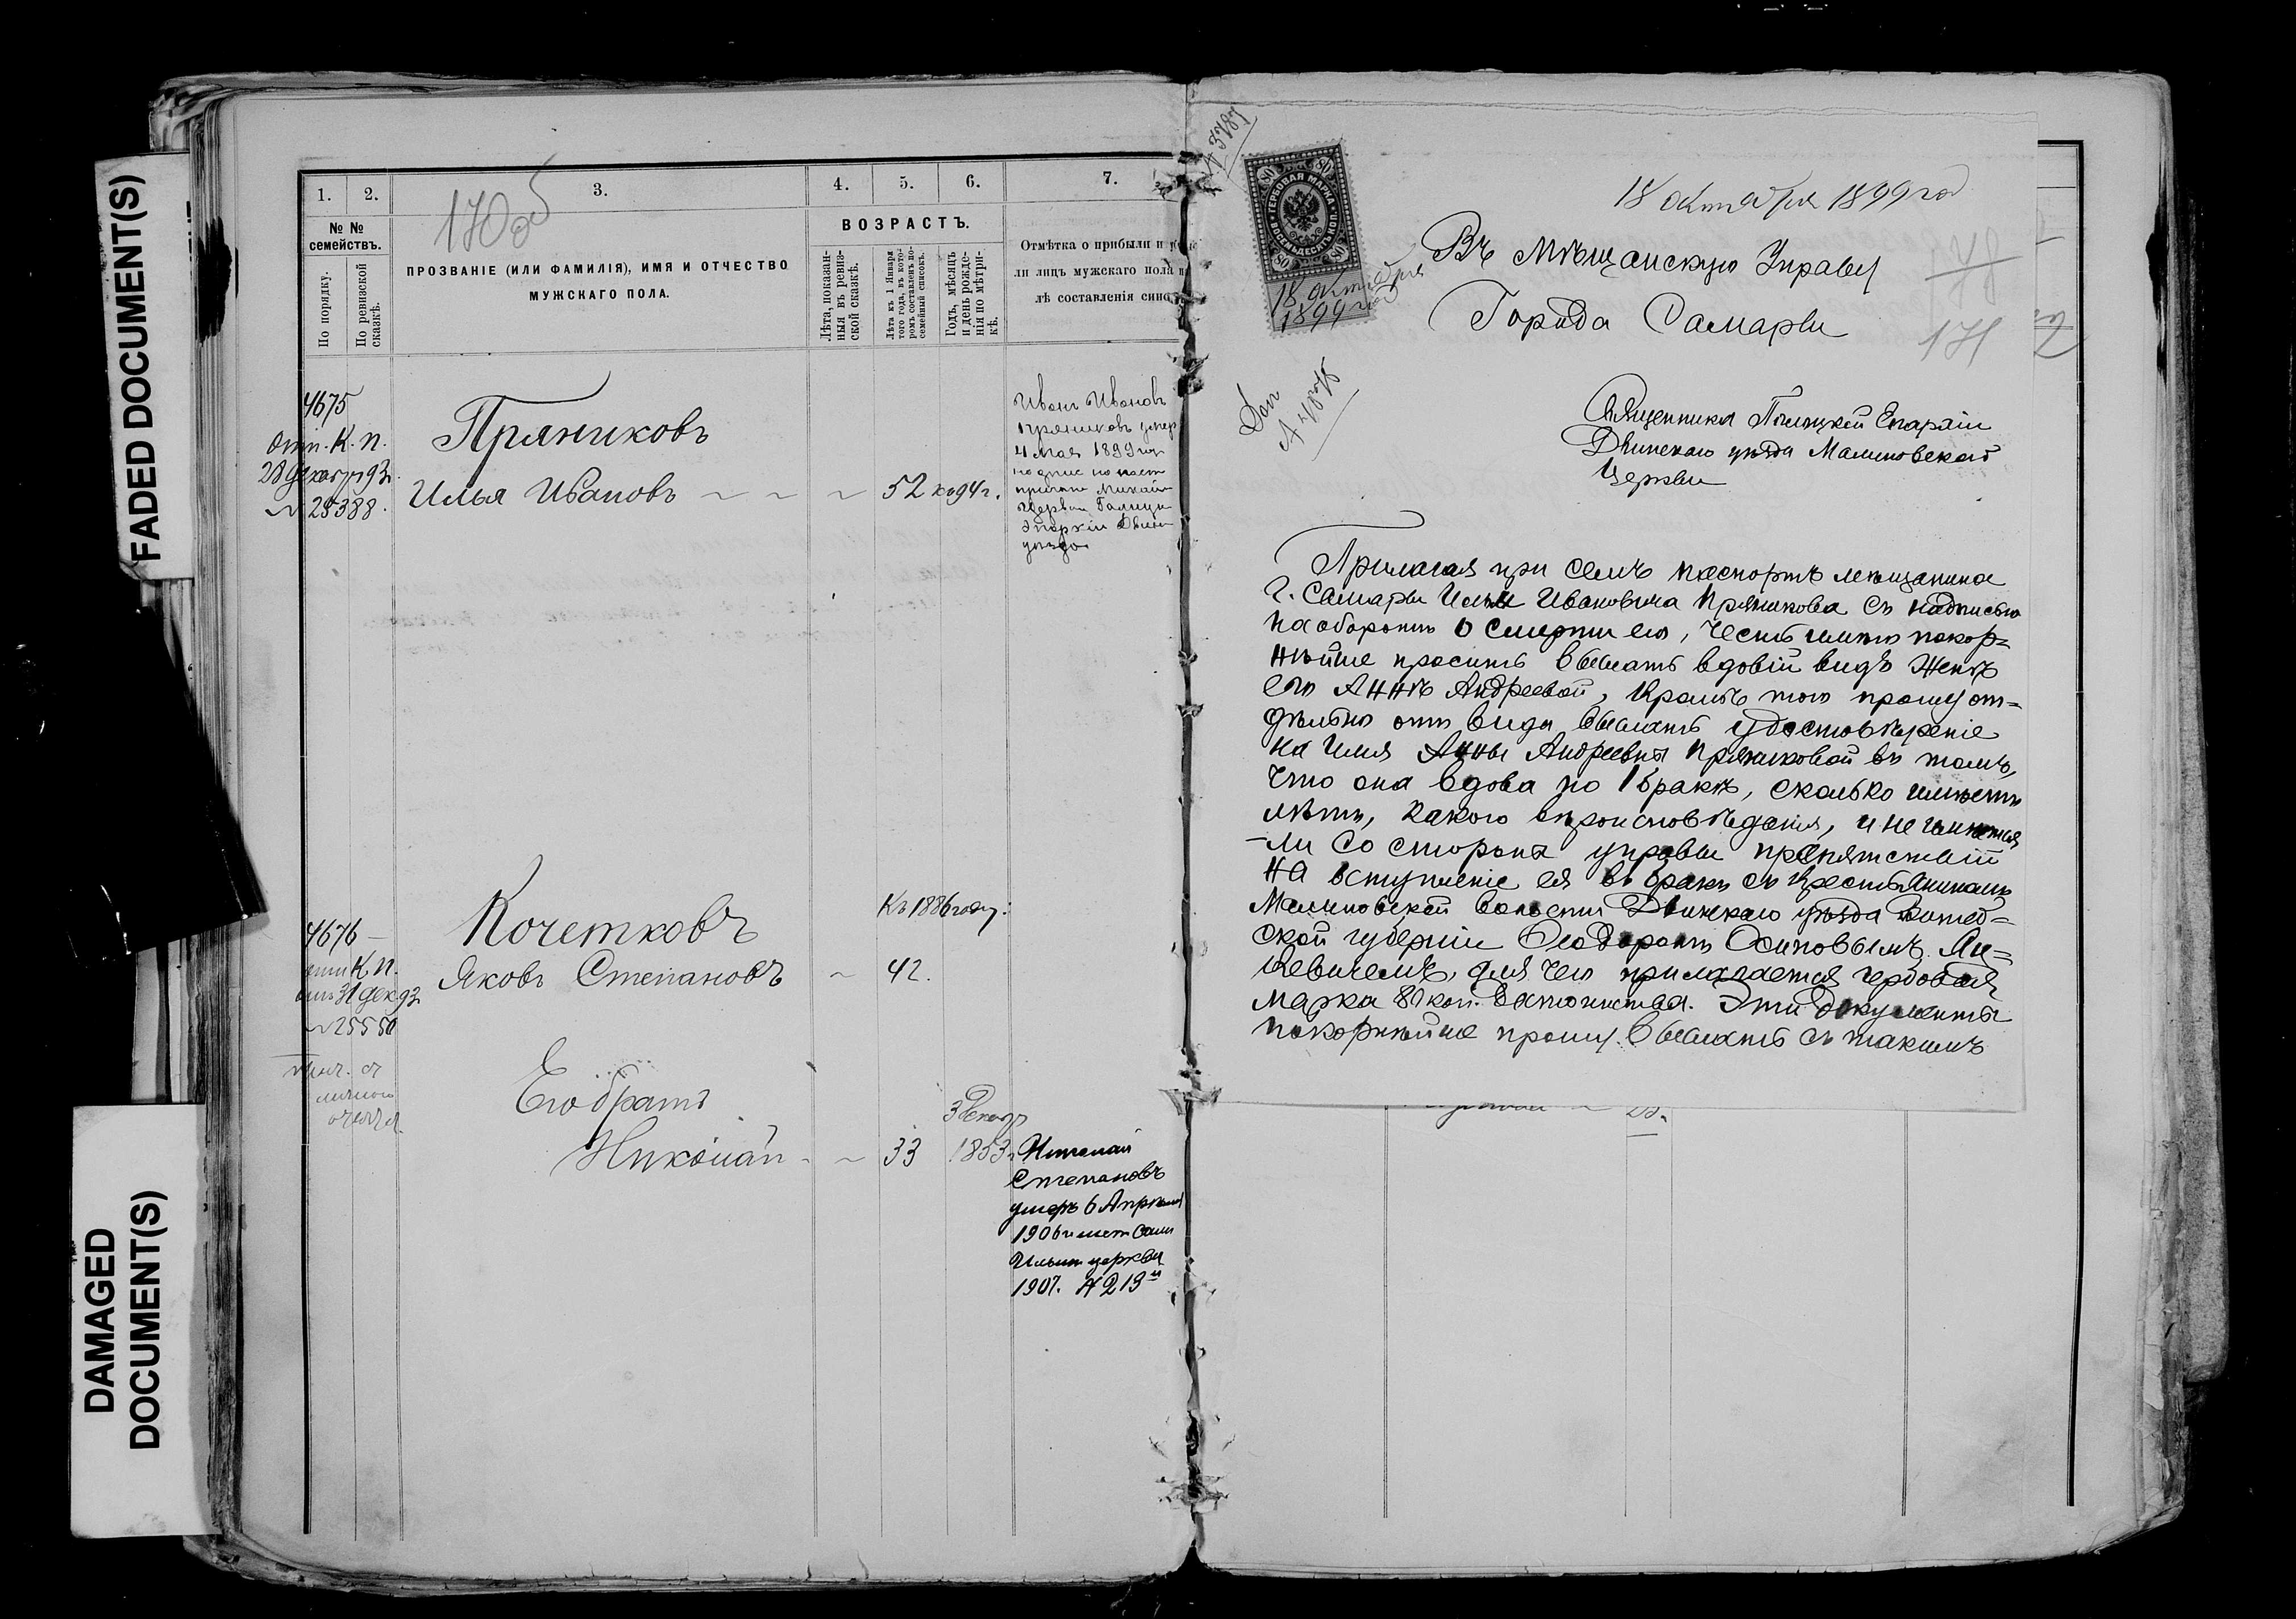 FADED DOCUMENT(S)
DAMAGED
DOCUMENT(S)
170об
1. 2. 3. 4. 5. 6. 7.
№ №
семействъ.
По порядку.
По ревизской
сказкѣ.
ПРОЗВАНІЕ (ИЛИ ФАМИЛІЯ), ИМЯ И ОТЧЕСТВО
МУЖСКАГО ПОЛА.
ВОЗРАСТЪ.
Лѣта, показан-
ныя въ ревиз-
ской сказкѣ.
Лѣта къ 1 Января
того года, въ кото-
ромъ составленъ по-
семейный списокъ.
Годъ, мѣсяцъ
и день рожде-
нія по метри-
кѣ.
Отмѣтка о прибыли и
ли лицъ мужскаго пола
лѣ составленія
4675
отп. К. п.
28 декабр 93
№ 25388.
Пряниковъ
Илья Ивановъ 52 къ 94 г.
Иванъ Ивановъ
Пряниковъ умер
4 мая 1899 г
Церкви
Эпархіи Двин
уѣзда
4676
К. п.
31 дек 93
№ 25550
Кочетковъ
Къ 1886 году:
Яковъ Степановъ 42.
Его братъ
3 Декабр
Николай 33 1853 г
Николай
Степановъ
умеръ 6 Апрѣля
1906 г метр Сам
Ильин церкви
1907. № 213
№ 3787
ГЕРБОВАЯ МАРКА
80 80 80 80
18 октября
1899 год
18 октября 1899 год
Въ Мѣщанскую Управу
Города Самары
78
171
Священника Полоцкой Епархіи
Двинскаго уѣзда Малиновской
Церкви
Прилагая при семъ паспортъ мѣщанина
г. Самары Ильи Ивановича Пряникова съ надписью
на оборотѣ о смерти его, честь имѣю покор=
нѣйше просить выслать вдовій видъ женѣ
его Аннѣ Андреевой, кромѣ того прошу от=
дѣльно отъ вида выслать удостовѣреніе
на имя Анны Андреевны Пряниковой въ томъ,
что она вдова по 1 бракѣ, сколько имѣетъ
лѣтъ, какого вѣроисповѣданія, и не имѣется
-ли со стороны управы препятствій
на вступленіе ея въ бракъ съ крестьяниномъ
Малиновской волости Двинскаго уѣзда Витеб=
ской губерніи Ѳеодоромъ Осиповымъ Ян=
кевичемъ, для чего прилагается гербовая
марка 80 коп. достоинства. Эти документы
покорнѣйше прошу выслать съ такимъ